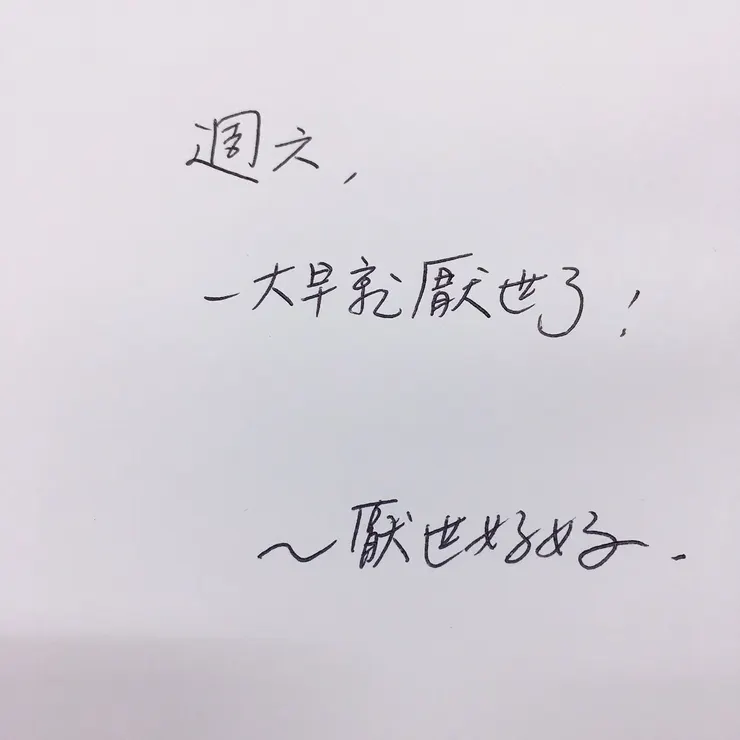 週六，
一大早就厭世了！
～厭世好好．